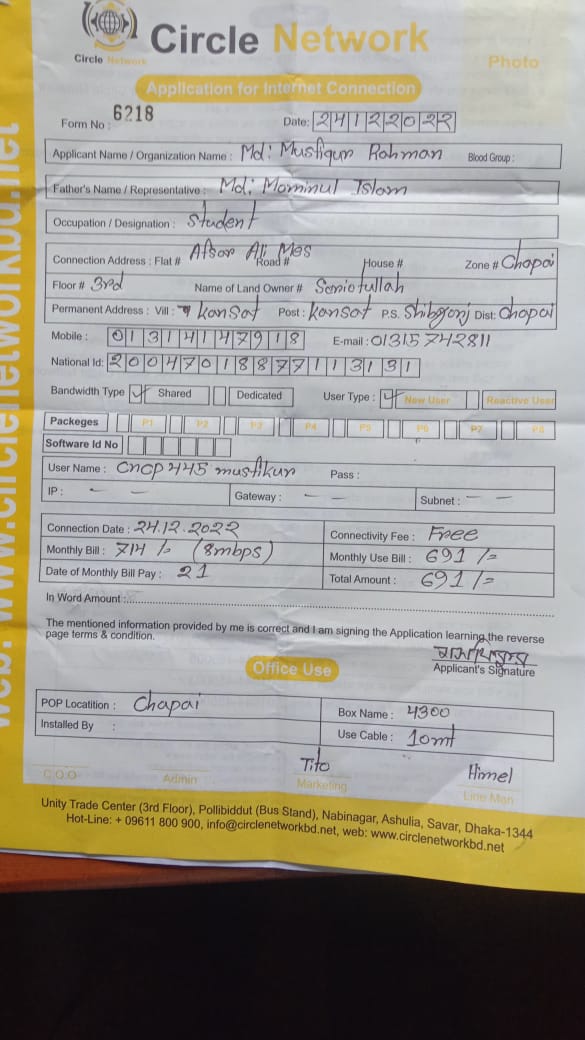 Circle Network
Circle Network
Photo
Application for Internet Connection
Form No : 6218
Date: 24122022
Applicant Name / Organization Name : Md: Mustiqur Rahman Blood Group :
Father's Name / Representative : Md: Mominul Islam
Occupation / Designation : Student
Connection Address : Flat # Afsar Ali Mes Road # House # Zone # Chapai
Floor # 3rd Name of Land Owner # Semiotullah
Permanent Address : Vill : Kansat Post : Kansat P.S. Shibgonj Dist: Chapai
Mobile : 01314147918 E-mail : 01315742811
National Id: 20047018877113131
Bandwidth Type Shared Dedicated User Type : New User Reactive User
Packeges P1 P2 P3 P4 P5 P6 P7 P8
Software Id No
User Name : cncp445 mustikur Pass :
IP : - - Gateway : - - Subnet : - -
Connection Date : 24.12.2022 Connectivity Fee : Free
Monthly Bill : 714 /- (8mbps) Monthly Use Bill : 691 /=
Date of Monthly Bill Pay : 21 Total Amount : 691 /=
In Word Amount :
The mentioned information provided by me is correct and I am signing the Application learning the reverse
page terms & condition.
Applicant's Signature
Office Use
POP Locatition : Chapai Box Name : 4300
Installed By : Use Cable : 10mt
Tito Himel
C.O.O Admin Marketing Line Man
Unity Trade Center (3rd Floor), Pollibiddut (Bus Stand), Nabinagar, Ashulia, Savar, Dhaka-1344
Hot-Line: + 09611 800 900, info@circlenetworkbd.net, web: www.circlenetworkbd.net
web: www.circlenetworkbd.net